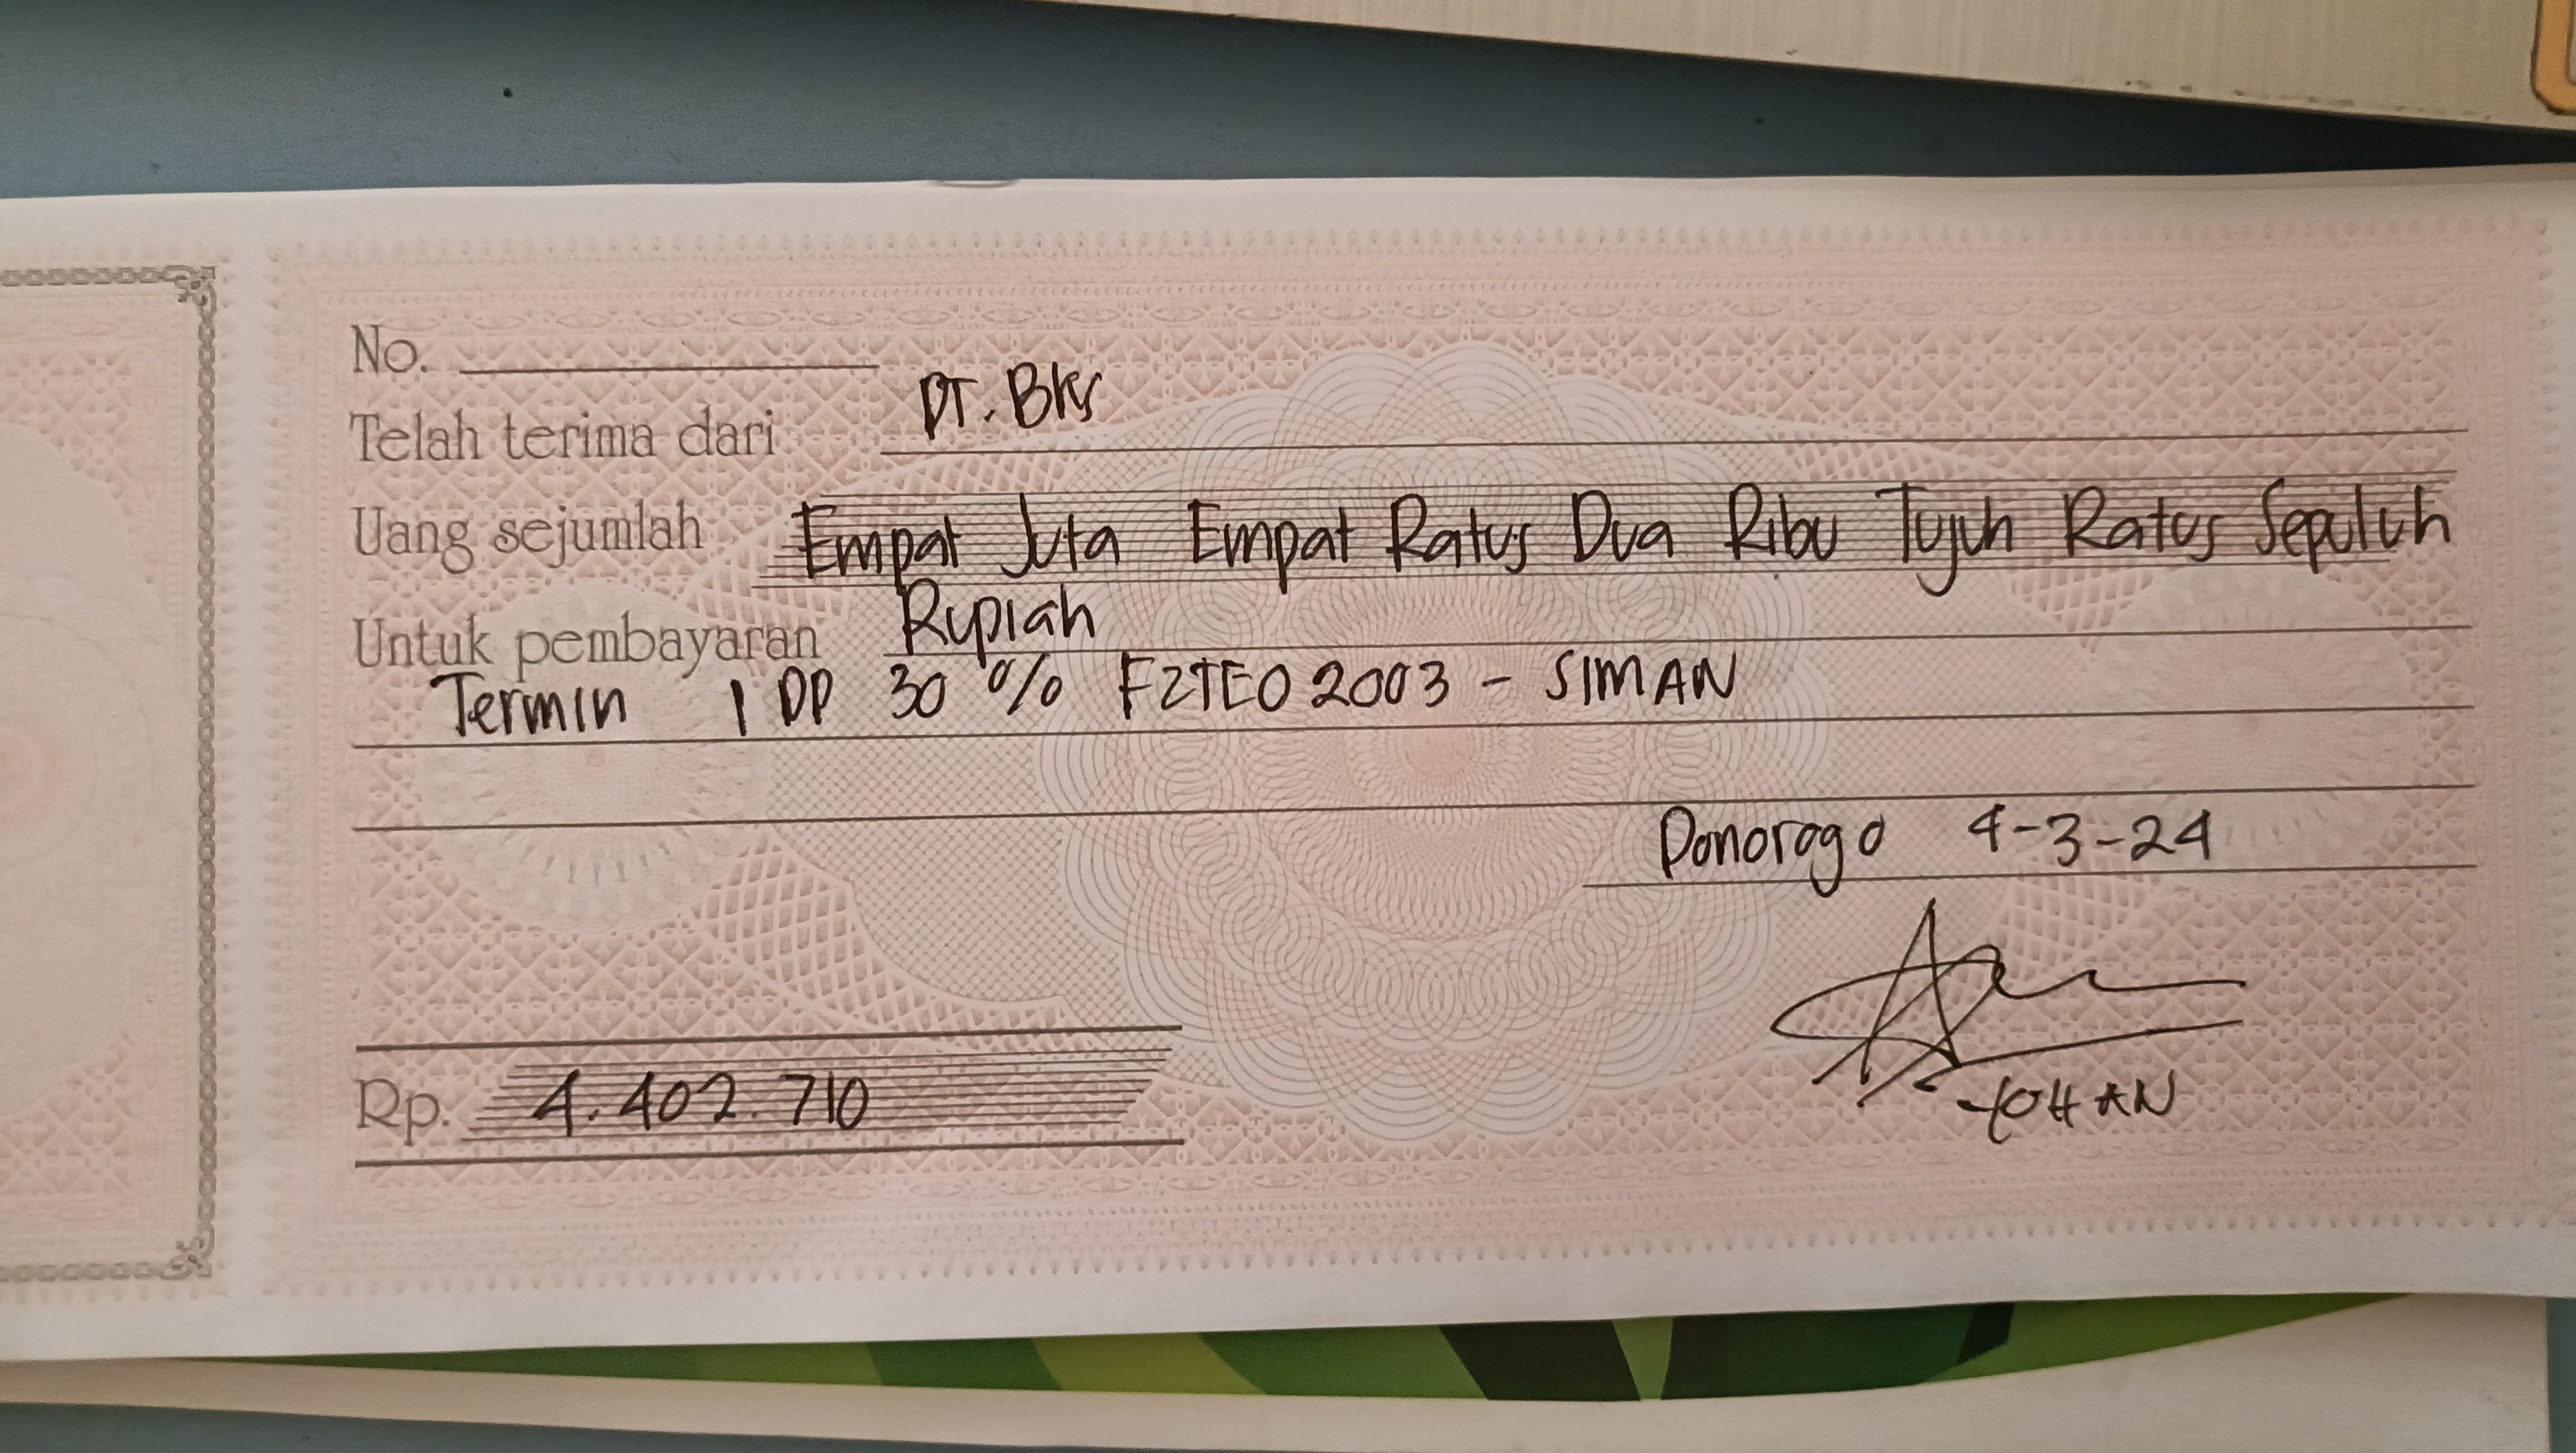 No.
Telah terima dari PT. BKS
Uang sejumlah Empat Juta Empat Ratus Dua Ribu Tujuh Ratus Sepuluh
Untuk pembayaran Rupiah
Termin 1 DP 30 % FZTEO 2003 - SIMAN
Ponorogo 4-3-24
Rp. 4.402.710
YOHAN